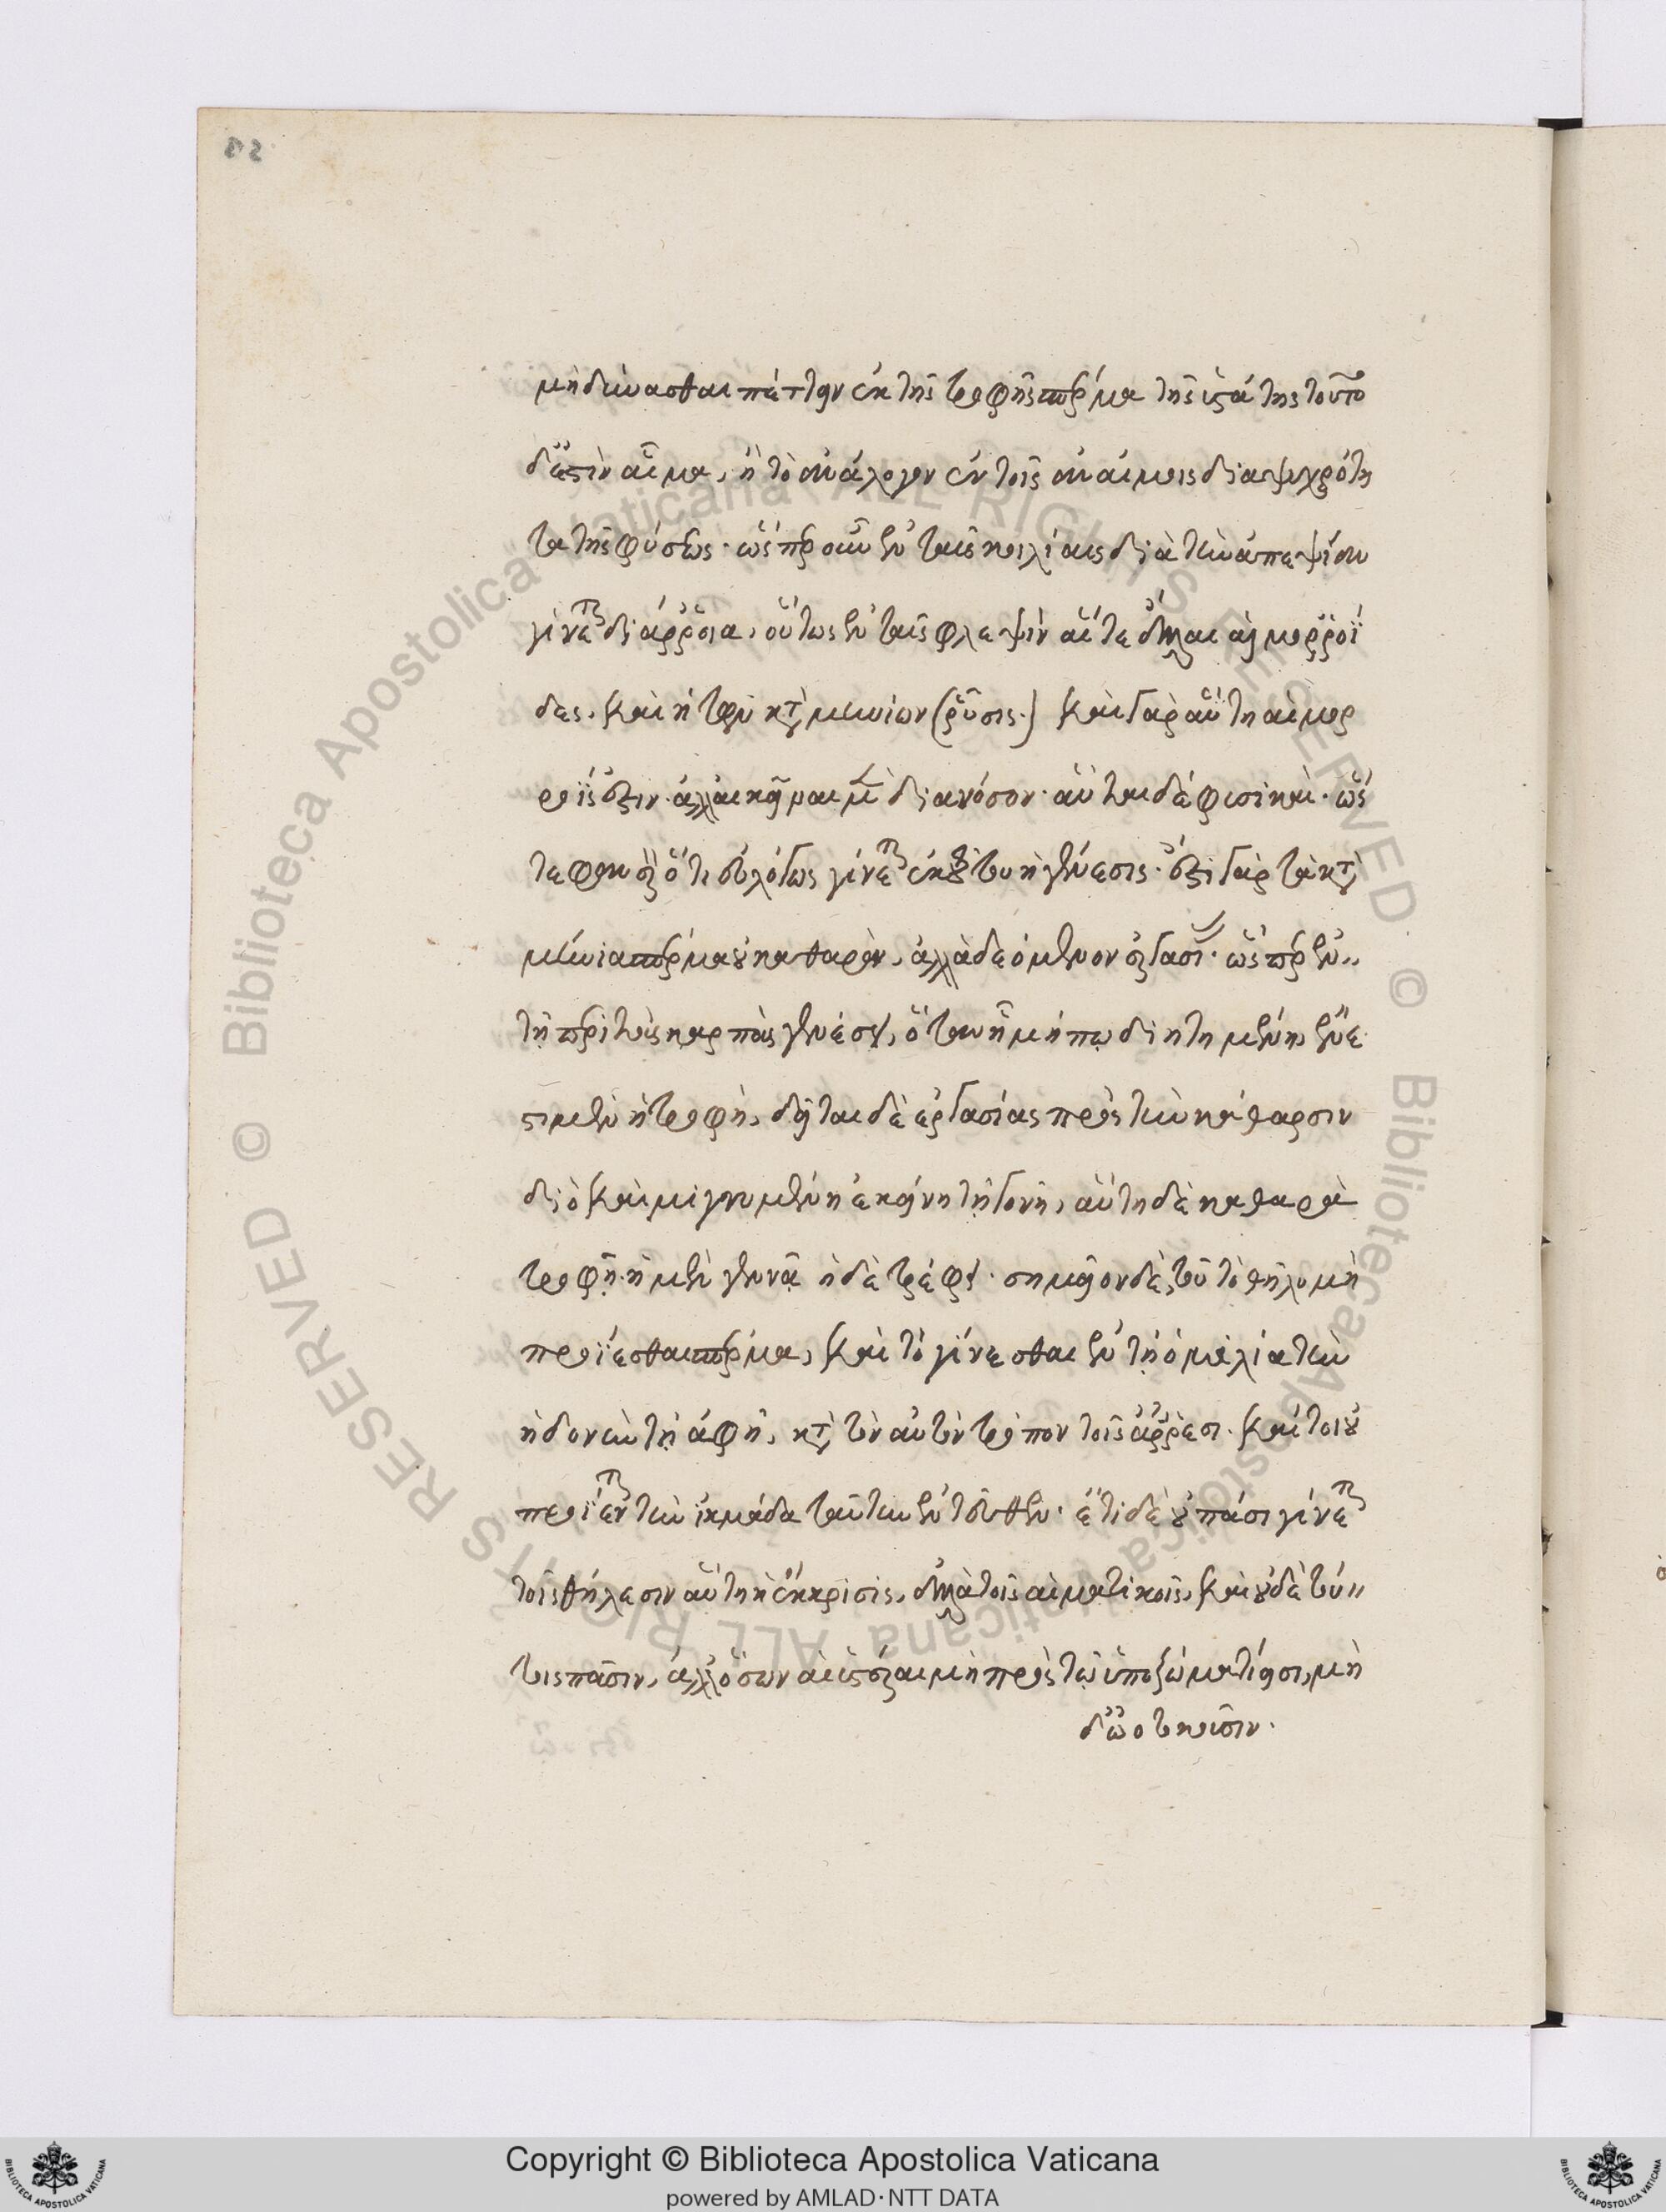 μὴ δύνασθαι πέττειν ἐκ τῆς τροφῆς σπέρμα τῆς ὑστάτης τοῦτο
δ' ἐστὶν αἷμα, ἢ τὸ ἀνάλογον ἐν τοῖς ἀναίμοις διὰ ψυχρότη
τα τῆς φύσεως· ὥσπερ οὖν ἐν ταῖς κοιλίαις διὰ τὴν ἀπεψίαν
γίνεται διάρροια, οὕτως ἐν ταῖς φλεψὶν αἵ τε ἄλλαι αἱμορροΐ
δες. καὶ ἡ τῶν καταμηνίων (ῥύσις.) καὶ γὰρ αὕτη αἱμορ
ροΐς ἐστιν. ἀλλ' ἐκεῖναι μὲν διὰ νόσον· αὗται δὲ φυσικαί. ὥς
τε φανερὸν ὅτι εὐλόγως γίνεται ἐκ τούτου ἡ γένεσις· ἔστι γὰρ τὰ κατα
μήνια σπέρμα οὐ καθαρὸν, ἀλλὰ δεόμενον ἐργασίας. ὥσπερ ἐν
τῇ περὶ τοὺς καρποὺς γενέσει, ὅταν ᾖ μήπω διητημένη, ἔνε
στι μὲν ἡ τροφὴ, δεῖται δὲ ἐργασίας πρὸς τὴν κάθαρσιν
διὸ καὶ μιγνυμένη ἐκείνη τῇ γονῇ, αὕτη δὲ καθαρᾷ
τροφῇ. ἡ μὲν γεννᾷ ἡ δὲ τρέφει. σημεῖον δὲ, τοῦ τὸ θῆλυ μὴ
προΐεσθαι σπέρμα, καὶ τὸ γίνεσθαι ἐν τῇ ὁμιλίᾳ τὴν
ἡδονὴν τῇ ἁφῇ, κατὰ τὸν αὐτὸν τρόπον τοῖς ἄρρεσι. καίτοι οὐ
προΐενται τὴν ἰκμάδα ταύτην ἐντεῦθεν. ἔτι δὲ οὐ πᾶσι γίνεται
τοῖς θήλεσιν αὕτη ἡ ἔκκρισις, ἀλλὰ τοῖς αἱματικοῖς, καὶ οὐδὲ τού
τοις πᾶσιν, ἀλλ' ὅσων αἱ ὑστέραι μὴ πρὸς τῷ ὑποζώματί εἰσι, μὴ
δ' ᾠοτοκοῦσιν.
Copyright © Biblioteca Apostolica Vaticana
powered by AMLAD·NTT DATA